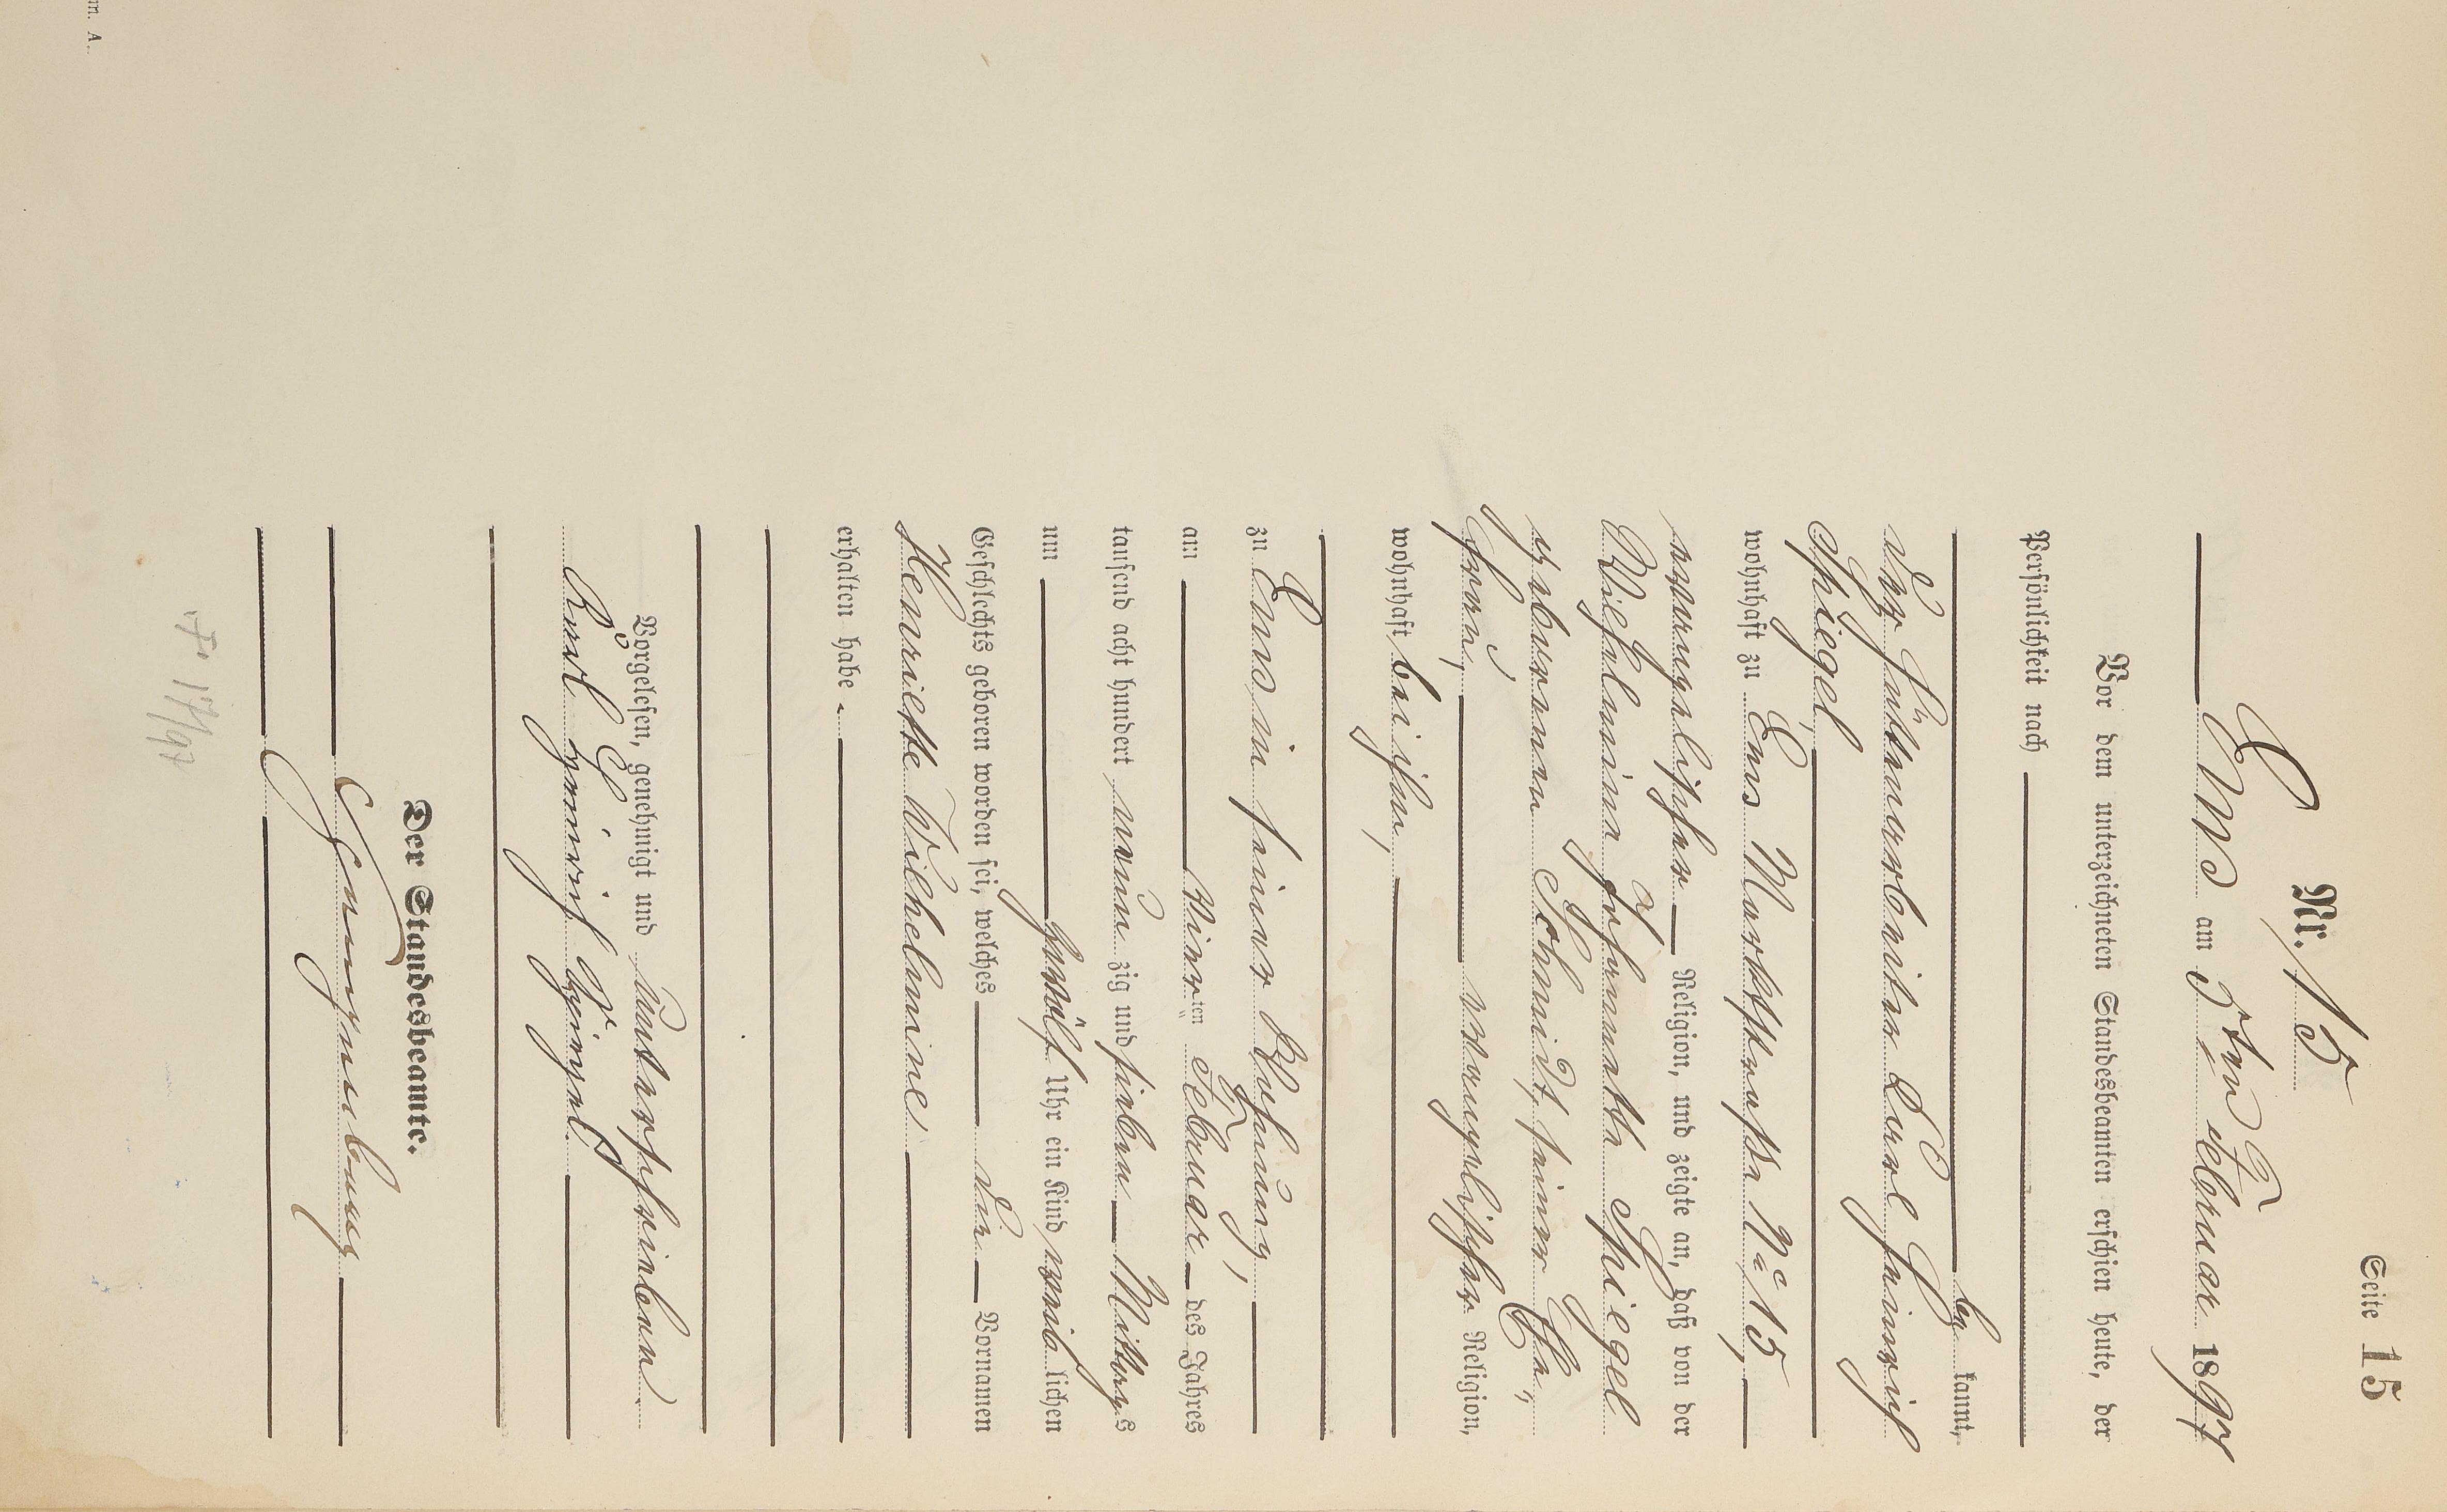 Seite 15
Nr. 15
Ems am 5ten Februar 1897
Vor dem unterzeichneten Standesbeamten erschien heute, der
Persönlichkeit nach
be kannt,
der Hüttenarbeiter Karl Heinrich
Spiegel,
wohnhaft zu Ems Marktstraße No 15,
evangelischer Religion, und zeigte an, daß von der
Wilhelmine Johannette Spiegel
geborenen Schmidt, seiner Ehe-
frau,
evangelischer Religion,
wohnhaft bei ihm,
zu Ems in seiner Wohnung,
am vierten Februar des Jahres
tausend acht hundert neun zig und sieben Mittags
um zwölf Uhr ein Kind weib lichen
Geschlechts geboren worden sei, welches die Vornamen
Henriette Wilhelmine
erhalten habe.
Vorgelesen, genehmigt und unterschrieben
Karl Heinrich Spiegel
Der Standesbeamte.
17/97
m. A.